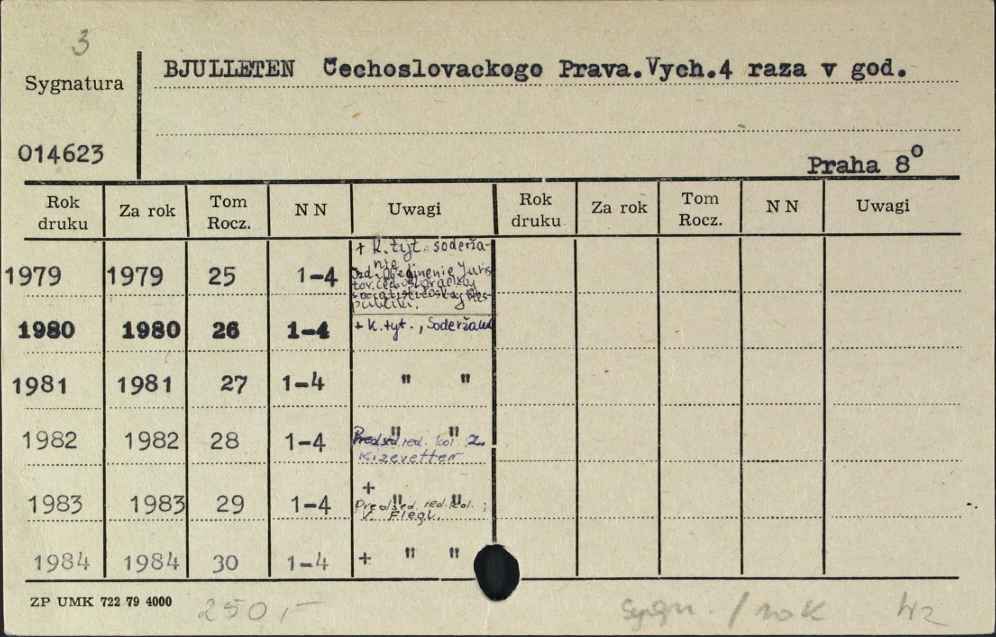 3
Sygnatura
BJULLETEN Čechoslovackogo Prava. Vych. 4 raza v god.
014623
Praha 8°
Rok druku Za rok Tom Rocz. N N Uwagi Rok druku Za rok Tom Rocz. N N Uwagi
1979 1979 25 1-4 + k. tyt. soderža-
nie
Izd. Obedinenie Juris
socialističeskoj Res-
publiki.
1980 1980 26 1-4 + k. tyt., Soderžanie
1981 1981 27 1-4 " "
1982 1982 28 1-4 " "
Predsed. red. kol. Z.
Kizevetter
1983 1983 29 1-4 + " "
Predsed. red. kol. :
V. Flegl.
1984 1984 30 1-4 + " "
ZP UMK 722 79 4000
250,-
Sygn. / rok